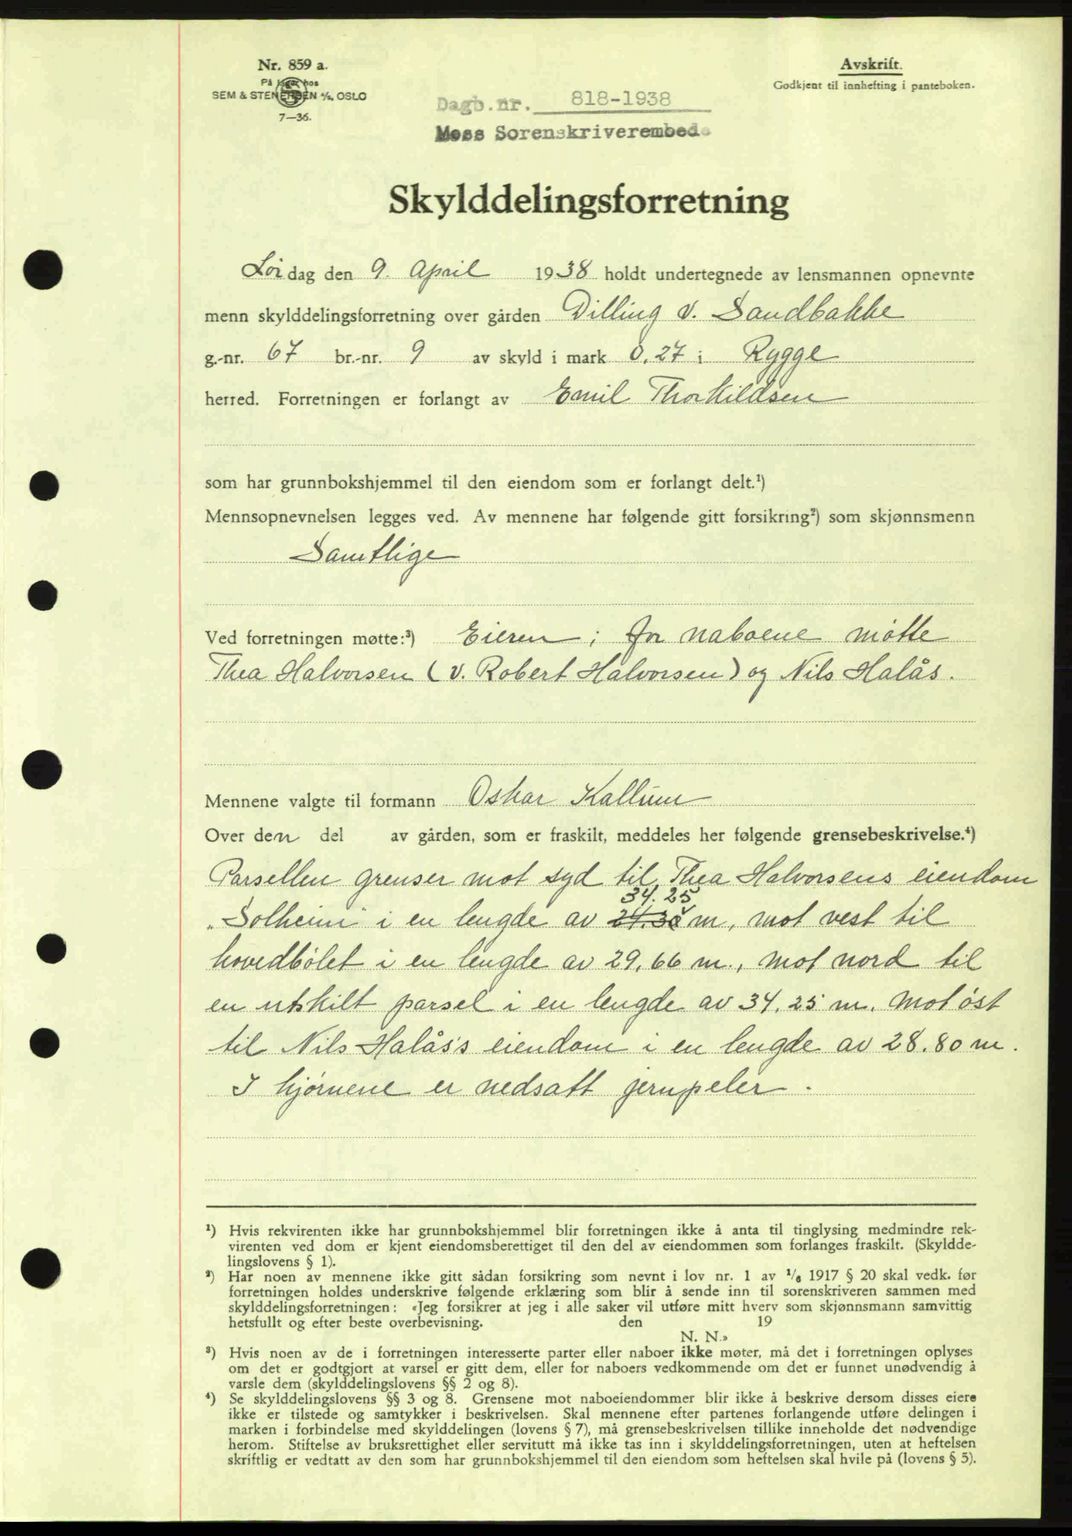 Nr. 859 a.
På lager hos
SEM & STENERSEN A/S, OSLO
7—36.
Avskrift.
Godkjent til innhefting i panteboken.
Dagb.nr. 818-1938
Moss Sorenskriverembede
Skylddelingsforretning
Lördag den 9. April 1938 holdt undertegnede av lensmannen opnevnte
menn skylddelingsforretning over gården Dilling v. Sandbakke
g.-nr. 67 br.-nr. 9 av skyld i mark 0,27 i Rygge
herred. Forretningen er forlangt av Emil Thorkildsen
som har grunnbokshjemmel til den eiendom som er forlangt delt.¹)
Mennsopnevnelsen legges ved. Av mennene har følgende gitt forsikring²) som skjønnsmenn
Samtlige
Ved forretningen møtte:³) Eieren; for naboene møtte
Thea Halvorsen (v. Robert Halvorsen) og Nils Halås.
Mennene valgte til formann Oskar Kallum
Over den del av gården, som er fraskilt, meddeles her følgende grensebeskrivelse.⁴)
Parsellen grenser mot syd til Thea Halvorsens eiendom
34.25
"Solheim" i en lengde av 24.30 m, mot vest til
hovedbølet i en lengde av 29,66 m., mot nord til
en utskilt parsel i en lengde av 34.25 m. Mot öst
til Nils Halås's eiendom i en lengde av 28.80 m.
I hjørnene er nedsatt jernpeler.
¹) Hvis rekvirenten ikke har grunnbokshjemmel blir forretningen ikke å anta til tinglysing medmindre rek-
virenten ved dom er kjent eiendomsberettiget til den del av eiendommen som forlanges fraskilt. (Skyldde-
lingslovens § 1).
²) Har noen av mennene ikke gitt sådan forsikring som nevnt i lov nr. 1 av 1/6 1917 § 20 skal vedk. før
forretningen holdes underskrive følgende erklæring som blir å sende inn til sorenskriveren sammen med
skylddelingsforretningen: «Jeg forsikrer at jeg i alle saker vil utføre mitt hverv som skjønnsmann samvittig
hetsfullt og efter beste overbevisning. den 19
N. N.»
³) Hvis noen av de i forretningen interesserte parter eller naboer ikke møter, må det i forretningen oplyses
om det er godtgjort at varsel er gitt dem, eller for naboers vedkommende om det er funnet unødvendig å
varsle dem (skylddelingslovens §§ 2 og 8).
⁴) Se skylddelingslovens §§ 3 og 8. Grensene mot naboeiendommer blir ikke å beskrive dersom disses eiere
ikke er tilstede og samtykker i beskrivelsen. Skal mennene efter partenes forlangende utføre delingen i
marken i forbindelse med skylddelingen (lovens § 7), må grensebeskrivelsen tillike inneholde det nødvendige
herom. Stiftelse av bruksrettighet eller servitutt må ikke tas inn i skylddelingsforretningen, uten at heftelsen
skriftlig er vedtatt av den som har grunnbokshjemmel til den eiendom som heftelsen skal hvile på (lovens § 5).